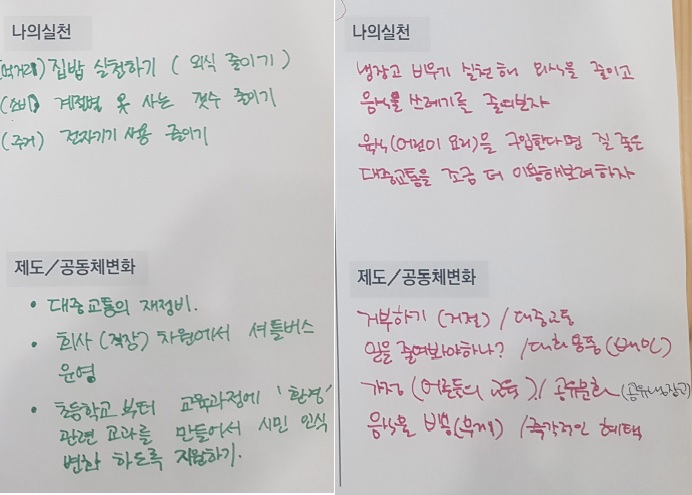 나의실천
(먹거리) 집밥 실천하기 ( 외식 줄이기 )
(소비) 계절별 옷 사는 갯수 줄이기
(주거) 전자기기 사용 줄이기
제도/공동체변화
• 대중교통의 재정비.
• 회사 (직장) 차원에서 셔틀버스
운영
• 초등학교 부터 교육과정에 '환경'
관련 교과를 만들어서 시민 인식
변화 하도록 지원하기.
나의실천
냉장고 비우기 실천해 외식을 줄이고
음식물 쓰레기를 줄여보자
육식(어린이 요리)을 구입한다면 질 좋은
대중교통을 조금 더 이용해보려하자
제도/공동체변화
거부하기 (거절) / 대중교통
일을 줄여봐야하나? / (배민)
가정 (어른들의 교육) / 공유문화 (공유냉장고)
음식물 / 즉각적인 혜택